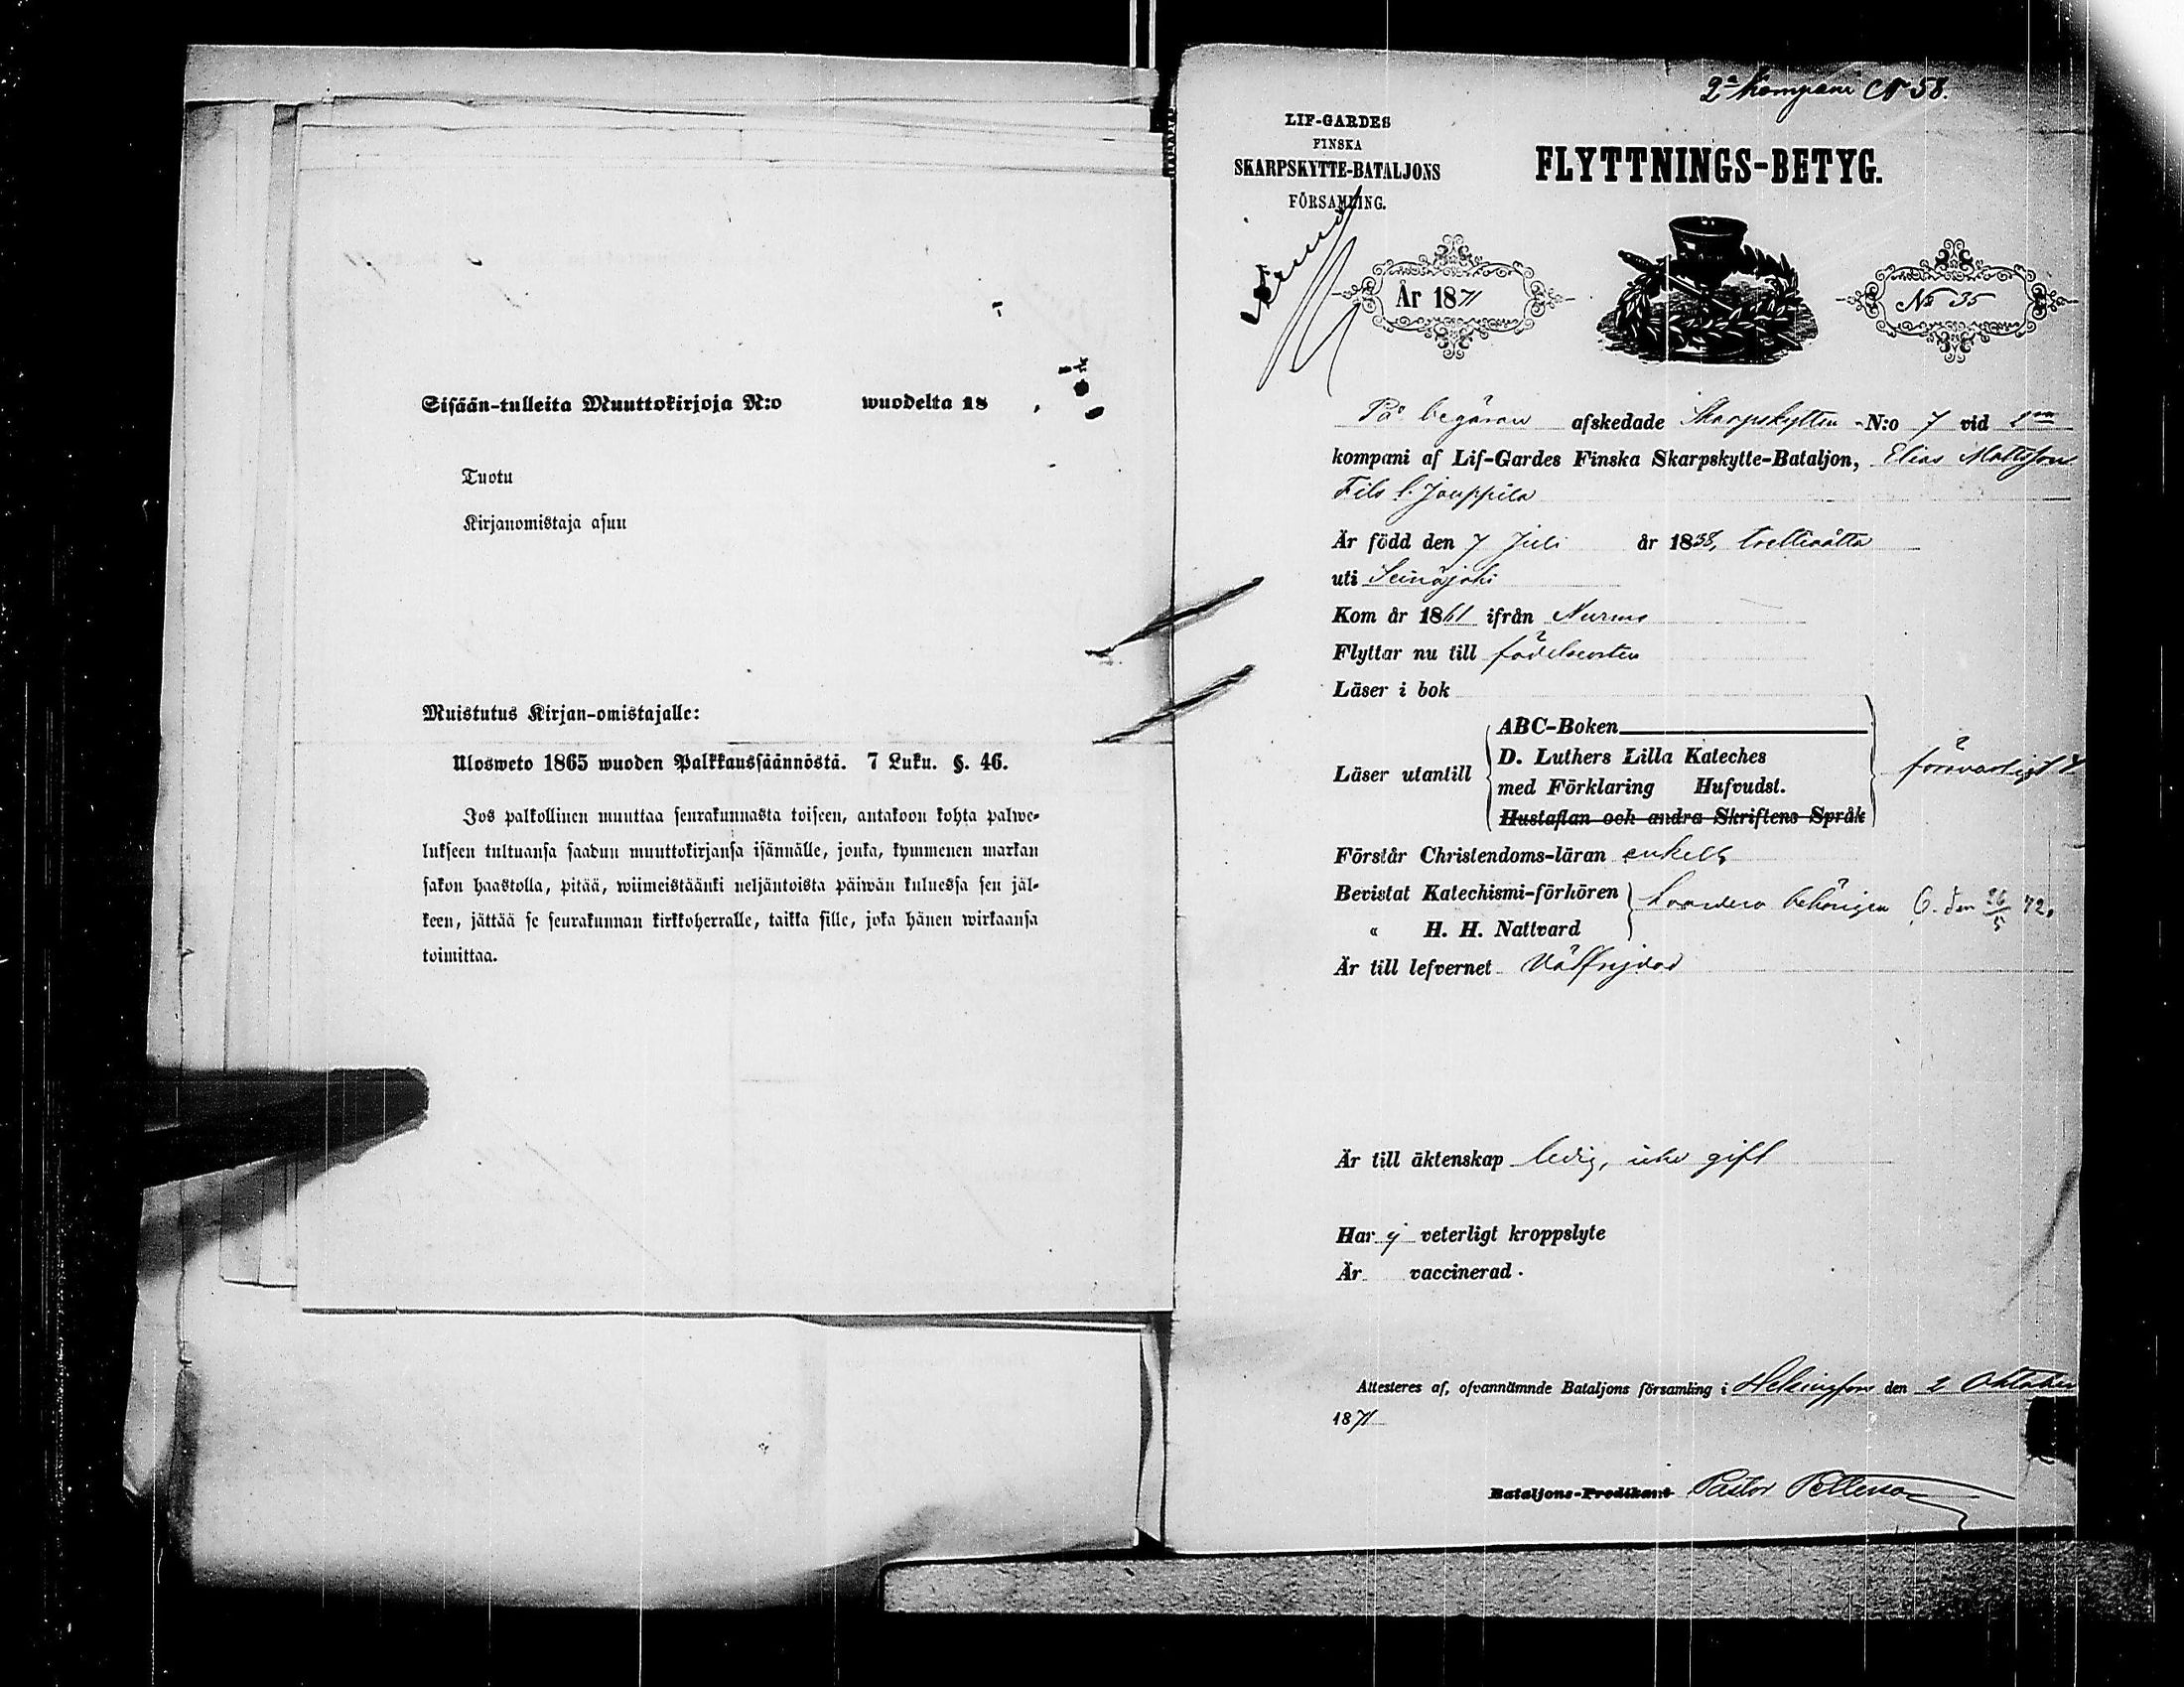 Sisään-tulleita Muuttokirjoja N:o wuodelta 18
Tuotu
Kirjanomistaja asuu
Muistutus Kirjan-omistajalle:
Ulosweto 1865 wuoden Palkkaussäännöstä. 7 Luku. §. 46.
Jos palkollinen muuttaa seurakunnasta toiseen, antakoon kohta palwe-
lukseen tultuansa saadun muuttokirjansa isännälle, jonka, kymmenen markan
sakon haastolla, pitää, wiimeistäänki neljäntoista päiwän kuluessa sen jäl-
keen, jättää se seurakunnan kirkkoherralle, taikka sille, joka hänen wirkaansa
toimittaa.
2a Kompani N 58.
LIF-GARDES
FINSKA
SKARPSKYTTE-BATALJONS
FÖRSAMLING.
FLYTTNINGS-BETYG.
År 1871
No 35
På begäran afskedade Skarpskytten N:o 7 vid
kompani af Lif-Gardes Finska Skarpskytte-Bataljon, Elias Mattsson
Jouppila
Är född den 7 Juli år 1838, trettioåtta
uti Seinäjoki
Kom år 1861 ifrån Nurmo
Flyttar nu till födelseorten
Läser i bok
Läser utantill
ABC-Boken
D. Luthers Lilla Kateches
med Förklaring Hufvudst.
Hustaflan och andra Skriftens Språk
försvarligt
Förstår Christendoms-läran enkelt
Bevistat Katechismi-förhören
« H. H. Nattvard
behörigen C. den 26/5 72.
Är till lefvernet Välfrejdad
Är till äktenskap ledig, icke gift
Har ej veterligt kroppslyte
Är vaccinerad.
Attesteres af, ofvannämnde Bataljons församling i Helsingfors den 2 Oktober
1871
Bataljons-Predikant Pastor Petterson